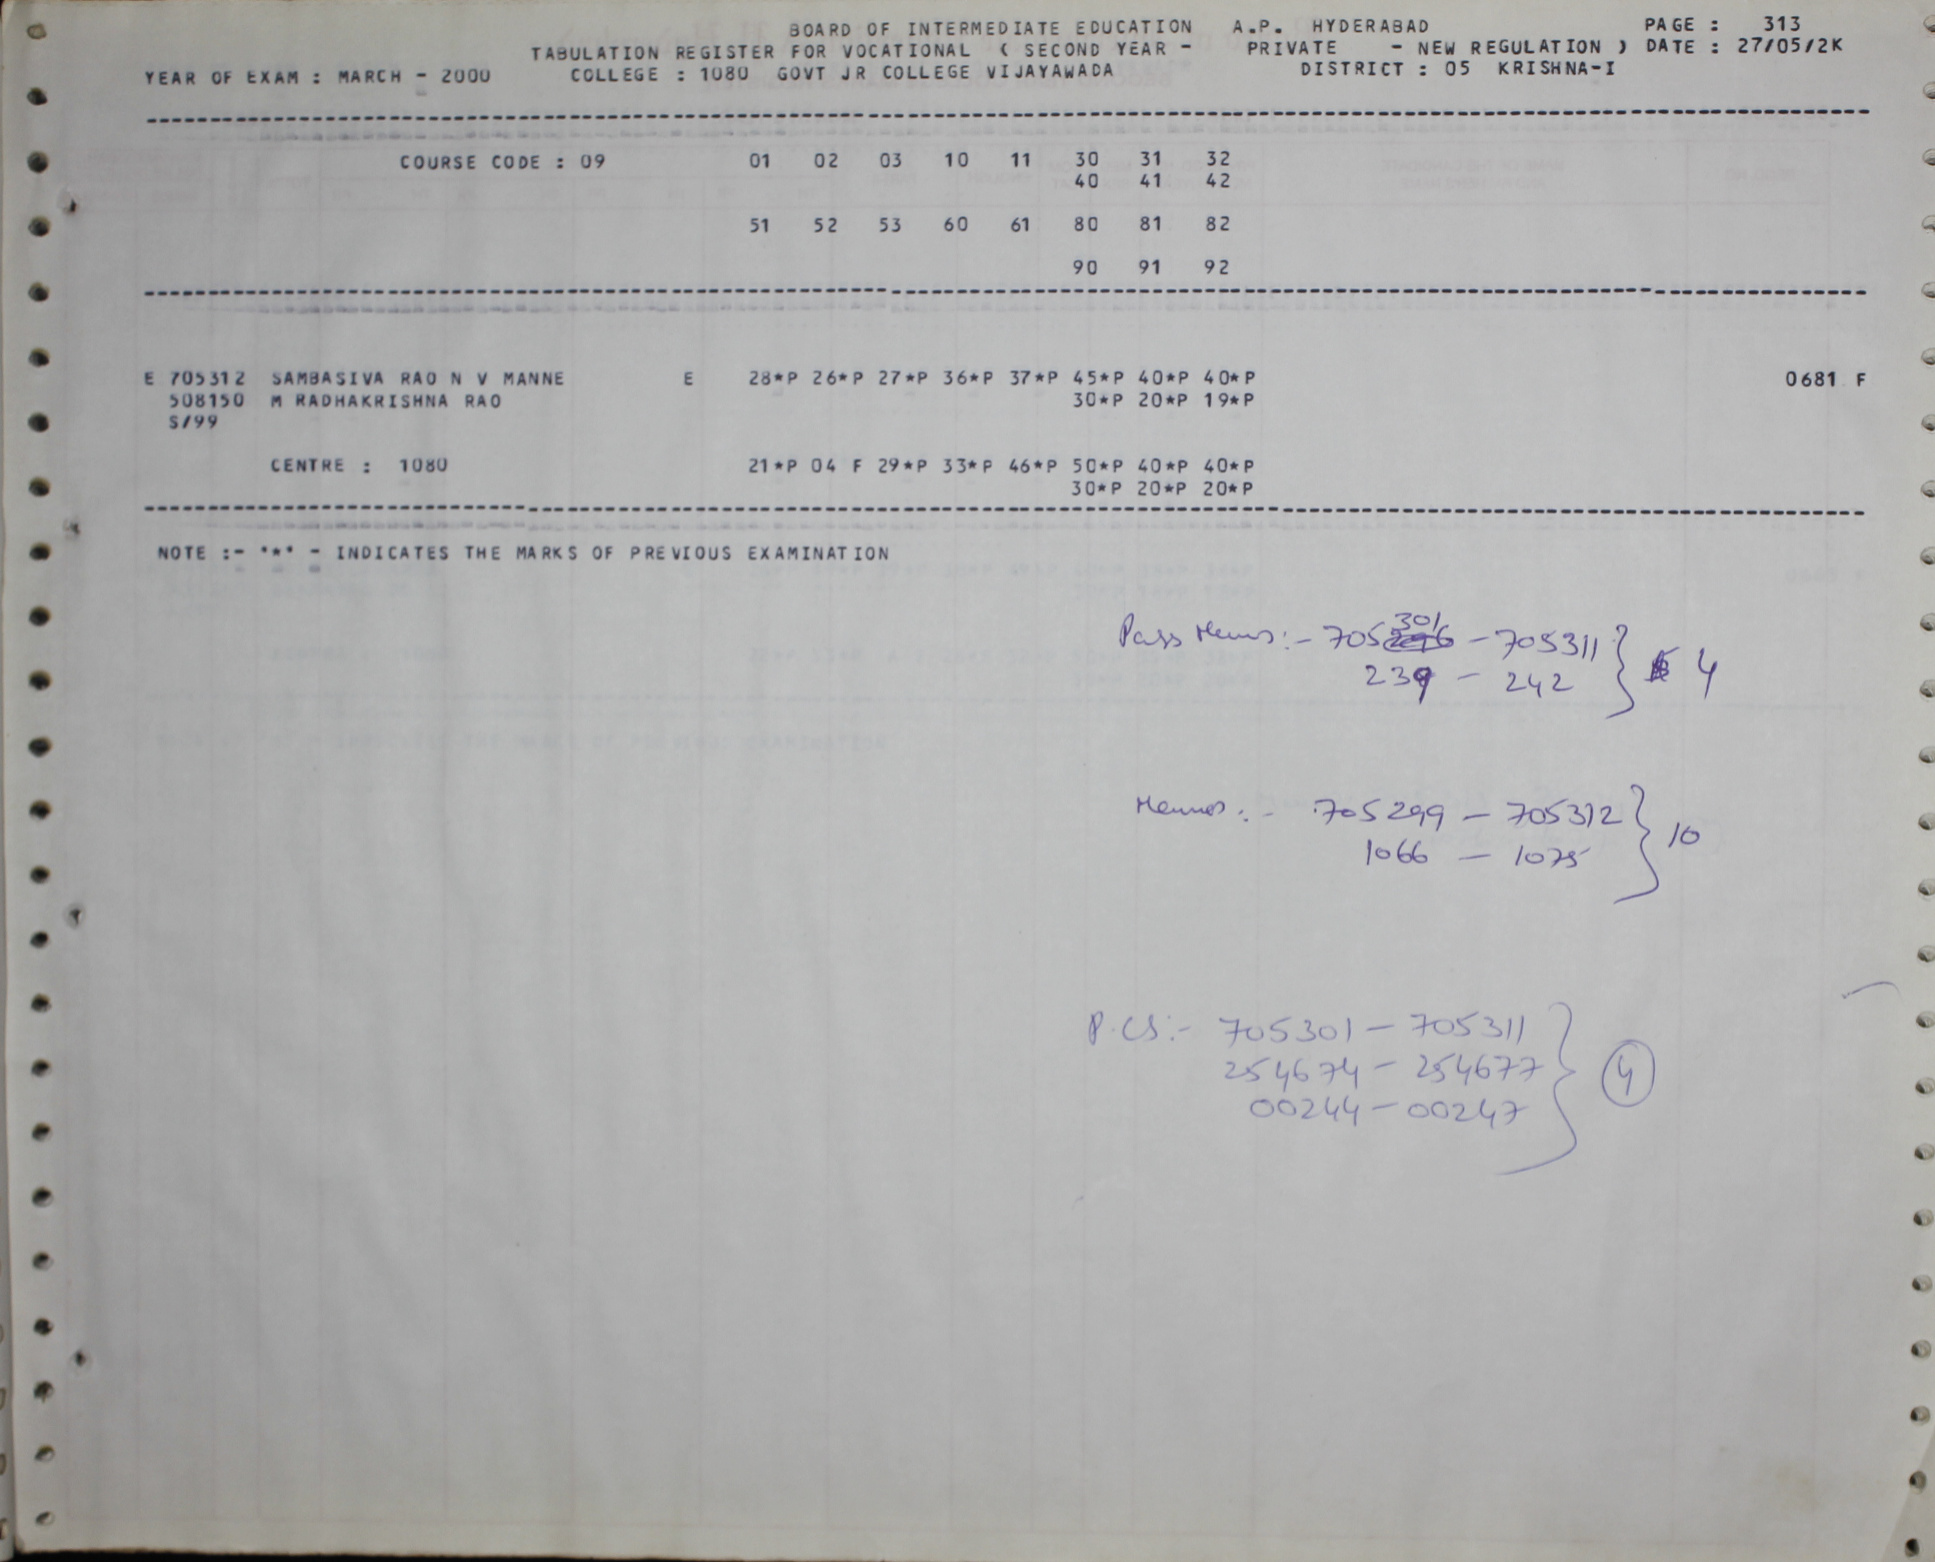 BOARD OF INTERMEDIATE EDUCATION A.P. HYDERABAD PAGE : 313
TABULATION REGISTER FOR VOCATIONAL ( SECOND YEAR - PRIVATE - NEW REGULATION ) DATE : 27/05/2K
YEAR OF EXAM : MARCH - 2000 COLLEGE : 1080 GOVT JR COLLEGE VIJAYAWADA DISTRICT : 05 KRISHNA-I
COURSE CODE : 09 01 02 03 10 11 30 31 32
40 41 42
51 52 53 60 61 80 81 82
90 91 92
E 705312 SAMBASIVA RAO N V MANNE E 28*P 26*P 27*P 36*P 37*P 45*P 40*P 40*P 0681 F
508150 M RADHAKRISHNA RAO 30*P 20*P 19*P
S/99
CENTRE : 1080 21*P 04 F 29*P 33*P 46*P 50*P 40*P 40*P
30*P 20*P 20*P
NOTE :- '*' - INDICATES THE MARKS OF PREVIOUS EXAMINATION
301
Pass Memos:- 705 - 705311 } 4
239 - 242
Memos:- 705299 - 705312 } 10
1066 - 1075
P.CS:- 705301 - 705311
254674 - 254677 } 4
00244 - 00247